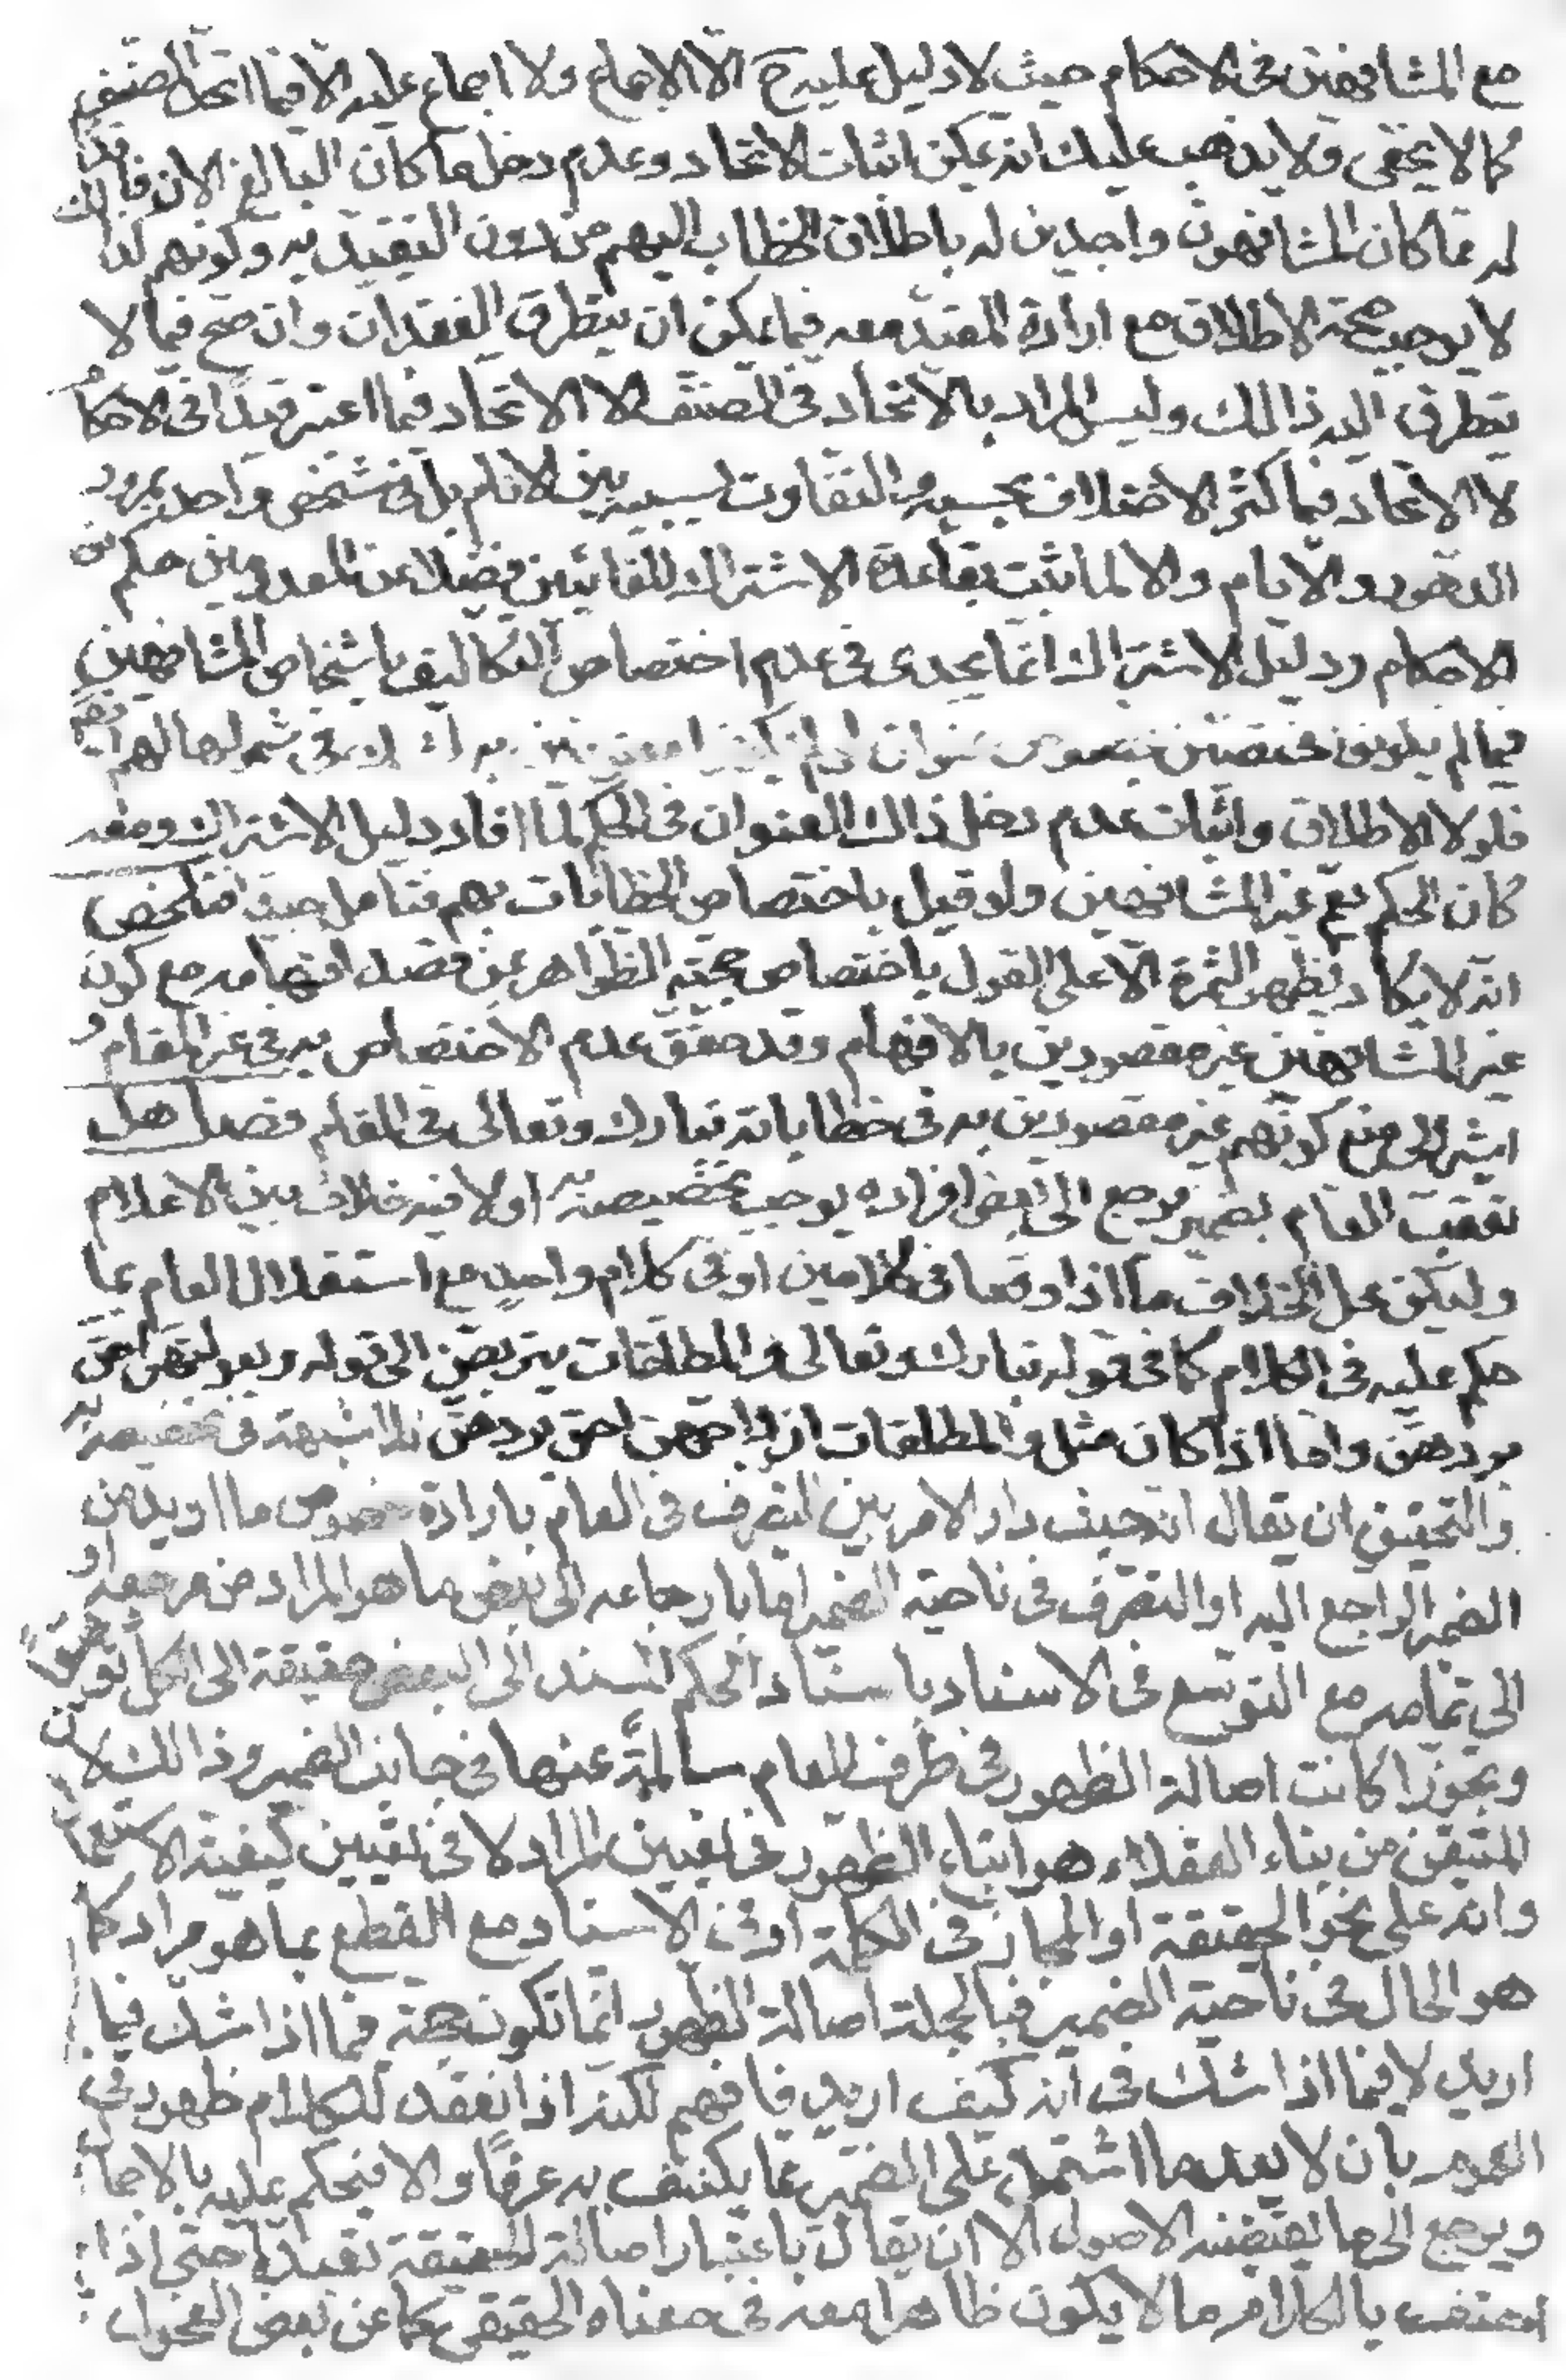 مع المشافهين فى الاحكام حيث لا دليل عليه ح الا الاجماع ولا اجماع عليه الا فيما اتحد الصنف
كما لا يخفى ولا يذهب عليك انه يمكن اثبات الاتحاد وعدم دخل ما كان البالغ الان فاقدا
له مما كان المشافهون واجدين له باطلاق الخطاب اليهم من دون التقييد به وكونهم كذلك
لا يوجب صحة الاطلاق مع ارادة المقيد معه فيما يمكن ان يتطرق الفقدان وان صح فيما لا
يتطرق اليه ذالك وليس المراد بالاتحاد فى الصنف الا الاتحاد فيما اعتبر قيدا فى الاحكام
لا الاتحاد فيما كثر الاختلاف بحسبه والتفاوت بسببه بين الانام بل فى شخص واحد بمرور
الدهور والايام والا لما ثبت بقاعدة الاشتراك للغائبين فضلا عن المعدومين حكم من
الاحكام ودليل الاشتراك انما يجدى فى عدم اختصاص التكاليف باشخاص المشافهين
فيما لم يكونوا مختصين بخصوص عنوان لو لم يكونوا معنونين به لشك فى شمولها لهم ايضا
فلولا الاطلاق واثبات عدم دخل ذاك العنوان فى الحكم لما افاد دليل الاشتراك ومعه
كان الحكم يعم غير المشافهين ولو قيل باختصاص الخطابات بهم فتامل جيدا فتلخص
انه لا يكاد يظهر الثمرة الا على القول باختصاص حجية الظواهر بمن قصد افهامه مع كون
غير المشافهين غير مقصودين بالافهام وقد حقق عدم الاختصاص به فى غير المقام و
اشير الى منع كونهم غير مقصودين به فى خطاباته تبارك وتعالى فى المقام فصل هل
تعقب العام بضمير يرجع الى بعض افراده يوجب تخصيصه به او لا فيه خلاف بين الاعلام
وليكن محل الخلاف ما اذا وقعا فى كلامين او فى كلام واحد مع استقلال العام بما
حكم عليه فى الكلام كما فى قوله تبارك وتعالى والمطلقات يتربصن الى قوله وبعولتهن احق
بردهن واما اذا كان مثل والمطلقات ازواجهن احق بردهن فلا شبهة فى تخصيصه به
والتحقيق ان يقال انه حيث دار الامر بين التصرف فى العام بارادة خصوص ما اريد من
الضمير الراجع اليه او التصرف فى ناحية الضمير اما بارجاعه الى بعض ما هو المراد من مرجعه او
الى تمامه مع التوسع فى الاسناد باسناد الحكم المسند الى البعض حقيقة الى الكل توسعا
وتجوزا كانت اصالة الظهور فى طرف العام سالمة عنها فى جانب الضمير وذالك لان
المتيقن من بناء العقلاء هو اتباع الظهور فى تعيين المراد لا فى تعيين كيفية الاستعمال
وانه على نحو الحقيقة او المجاز فى الكلمة او فى الاسناد مع القطع بما هو مراد كما
هو الحال فى ناحية الضمير فبالجملة اصالة الظهور انما تكون حجة فيما اذا شك فيما
اريد لا فيما اذا شك فى انه كيف اريد فافهم لكنه اذا انعقد للكلام ظهور فى
العموم بان لا يعد ما اشتمل على الضمير مما يكتنف به عرفا والا فيحكم عليه بالاجمال
ويرجع الى ما يقتضيه الاصول الا ان يقال باعتبار اصالة الحقيقة تعبدا حتى اذا
احتف بالكلام ما لا يكون ظاهرا معه فى معناه الحقيقى كما عن بعض الفحول